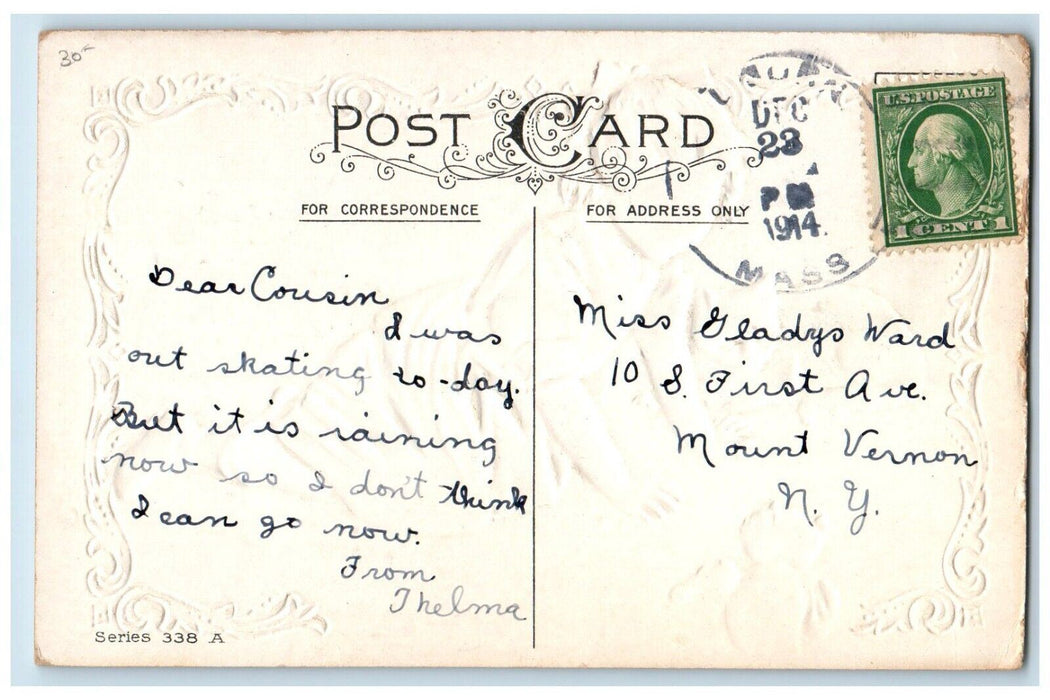 30
POST CARD
FOR CORRESPONDENCE
FOR ADDRESS ONLY
DEC
23
PM
1914.
MASS
U.S. POSTAGE
1 CENT 1
Dear Cousin
I was
out skating to-day.
But it is raining
now so I don't think
I can go now.
From
Thelma
Miss Gladys Ward
10 S. First Ave.
Mount Vernon
N. Y.
Series 338 A